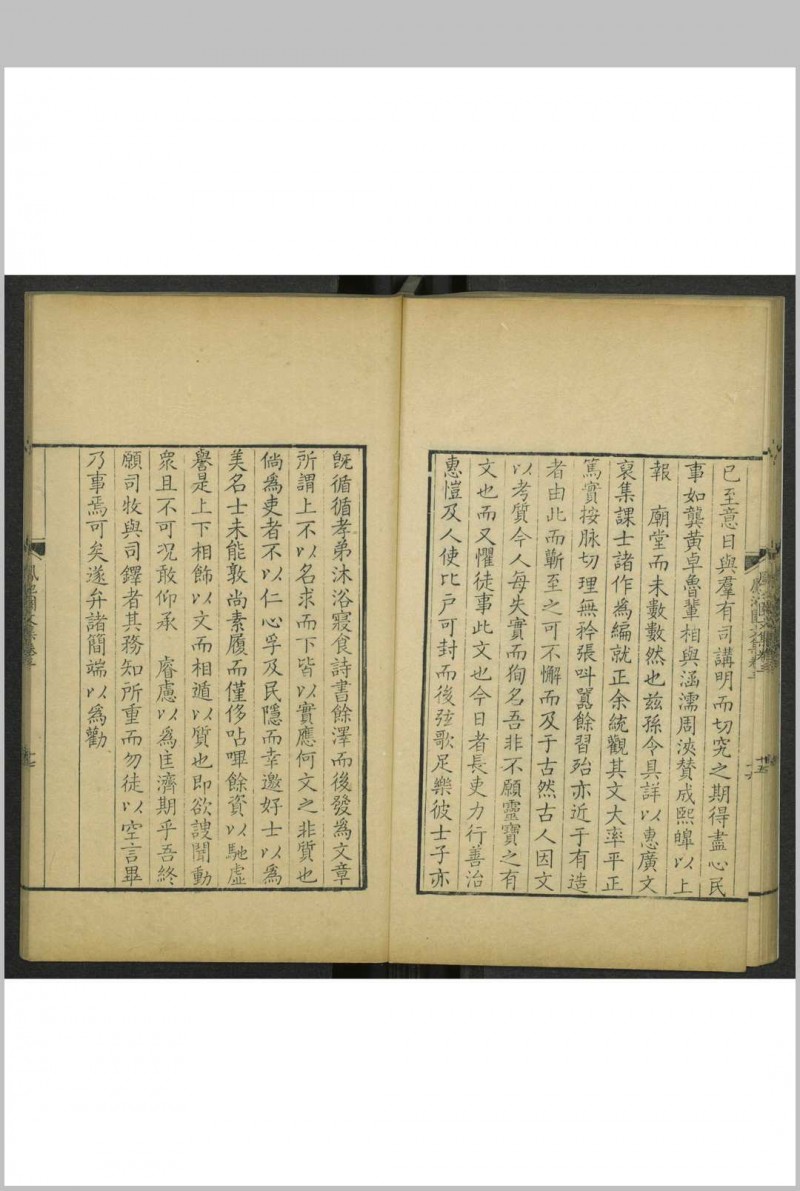 已至意日與羣有司講明而切究之期得盡心民
事如龔黃卓魯輩相與涵濡周浹贊成熙皞以上
報　廟堂而未數數然也茲孫令具詳以惠廣文
裒集課士諸作為編就正余統觀其文大率平正
篤實按脉切理無矜張叫囂餘習殆亦近于有造
者由此而蘄至之可不懈而及于古然古人因文
以考質今人每失實而狥名吾非不願靈寶之有
文也而又懼徒事此文也今日者長吏力行善治
惠愷及人使比戶可封而後弦歌足樂彼士子亦
既循循孝弟沐浴寢食詩書餘澤而後發為文章
所謂上不以名求而下皆以實應何文之非質也
倘為吏者不以仁心孚及民隱而幸邀好士以為
美名士未能敦尚素履而僅侈呫嗶餘資以馳虛
譽是上下相飾以文而相遁以質也即欲謏聞動
衆且不可况敢仰承　睿慮以為匡濟期乎吾終
願司牧與司鐸者其務知所重而勿徒以空言畢
乃事焉可矣遂弁諸簡端以為勸